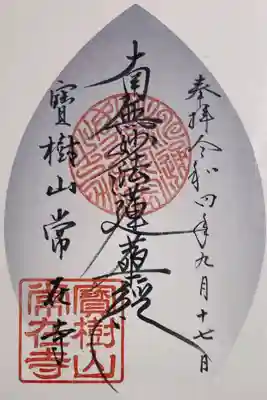 奉拝令和四年九月十七日
南無妙法蓮華経
寶樹山常在寺
寶樹山
常在寺